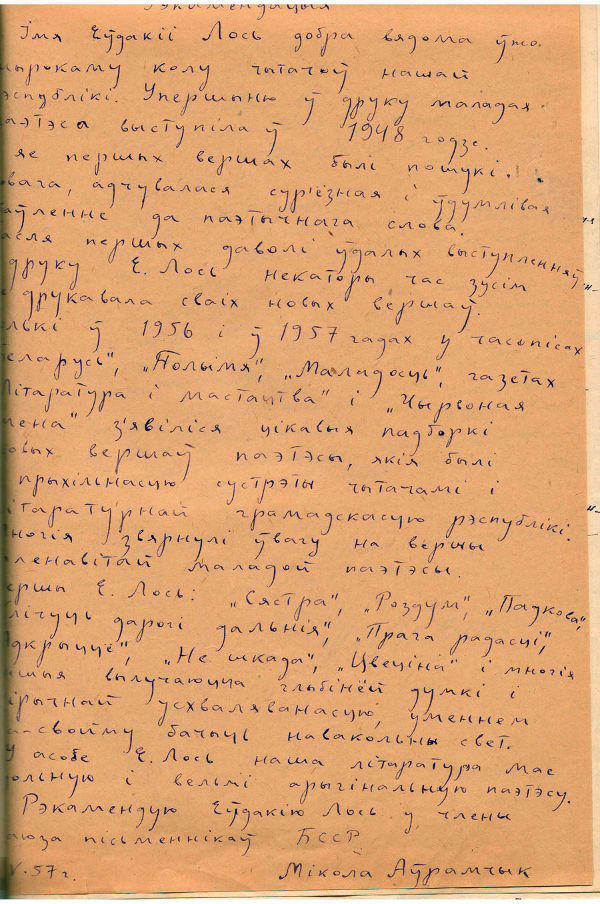 Рэкамендацыя
Імя Еўдакіі Лось добра вядома ўжо
шырокаму колу чытачоў нашай
рэспублікі. Упершыню ў друку маладая
паэтэса выступіла ў 1948 годзе.
яе першых вершах былі пошукі
адчувалася сур'ёзная і ўдумлівая
да паэтычнага слова.
асля першых даволі ўдалых выступленняў
друку Е. Лось некаторы час зусім
е друкавала сваіх новых вершаў.
олькі ў 1956 і ў 1957 гадах у часопісах
еларусь", „Полымя", „Маладосць", газетах
Літаратура і мастацтва" і „Чырвоная
мена" з'явіліся цікавыя падборкі
овых вершаў паэтэсы, якія былі
прыхільнасую сустрэты чытачамі і
ітаратурнай грамадскасую рэспублікі.
ногія звярнулі ўвагу на вершы
аленавітай маладой паэтэсы.
ершы Е. Лось: „Сястра", „Роздум", „Падкова",
лічуць дарогі дальнія", „Прага радасці",
дкрыццё", „Не шкада", „Цвеціна" і многія
ншыя вылучаюцца глыбінёй думкі і
ірычнай усхваляванасую, уменнем
а-свойму бачыць навакольны свет.
У асобе Е. Лось наша літаратура мае
ольную і вельмі арыгінальную паэтэсу.
Рэкамендую Еўдакію Лось у члены
аюза пісьменнікаў БССР
V. 57 г. Мікола Аўрамчык